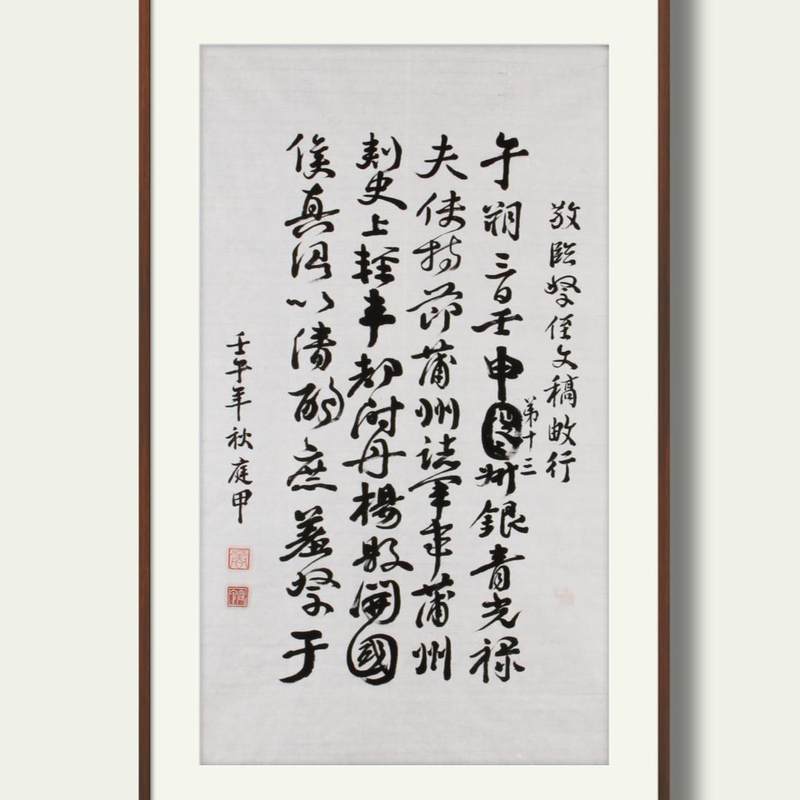 敬臨祭侄文稿數行
午朔三日壬申第十三叔銀青光禄
夫使持節蒲州諸軍事蒲州
刺史上輕車都尉丹楊縣開國
侯真卿以清酌庶羞祭于
壬午年秋庭甲